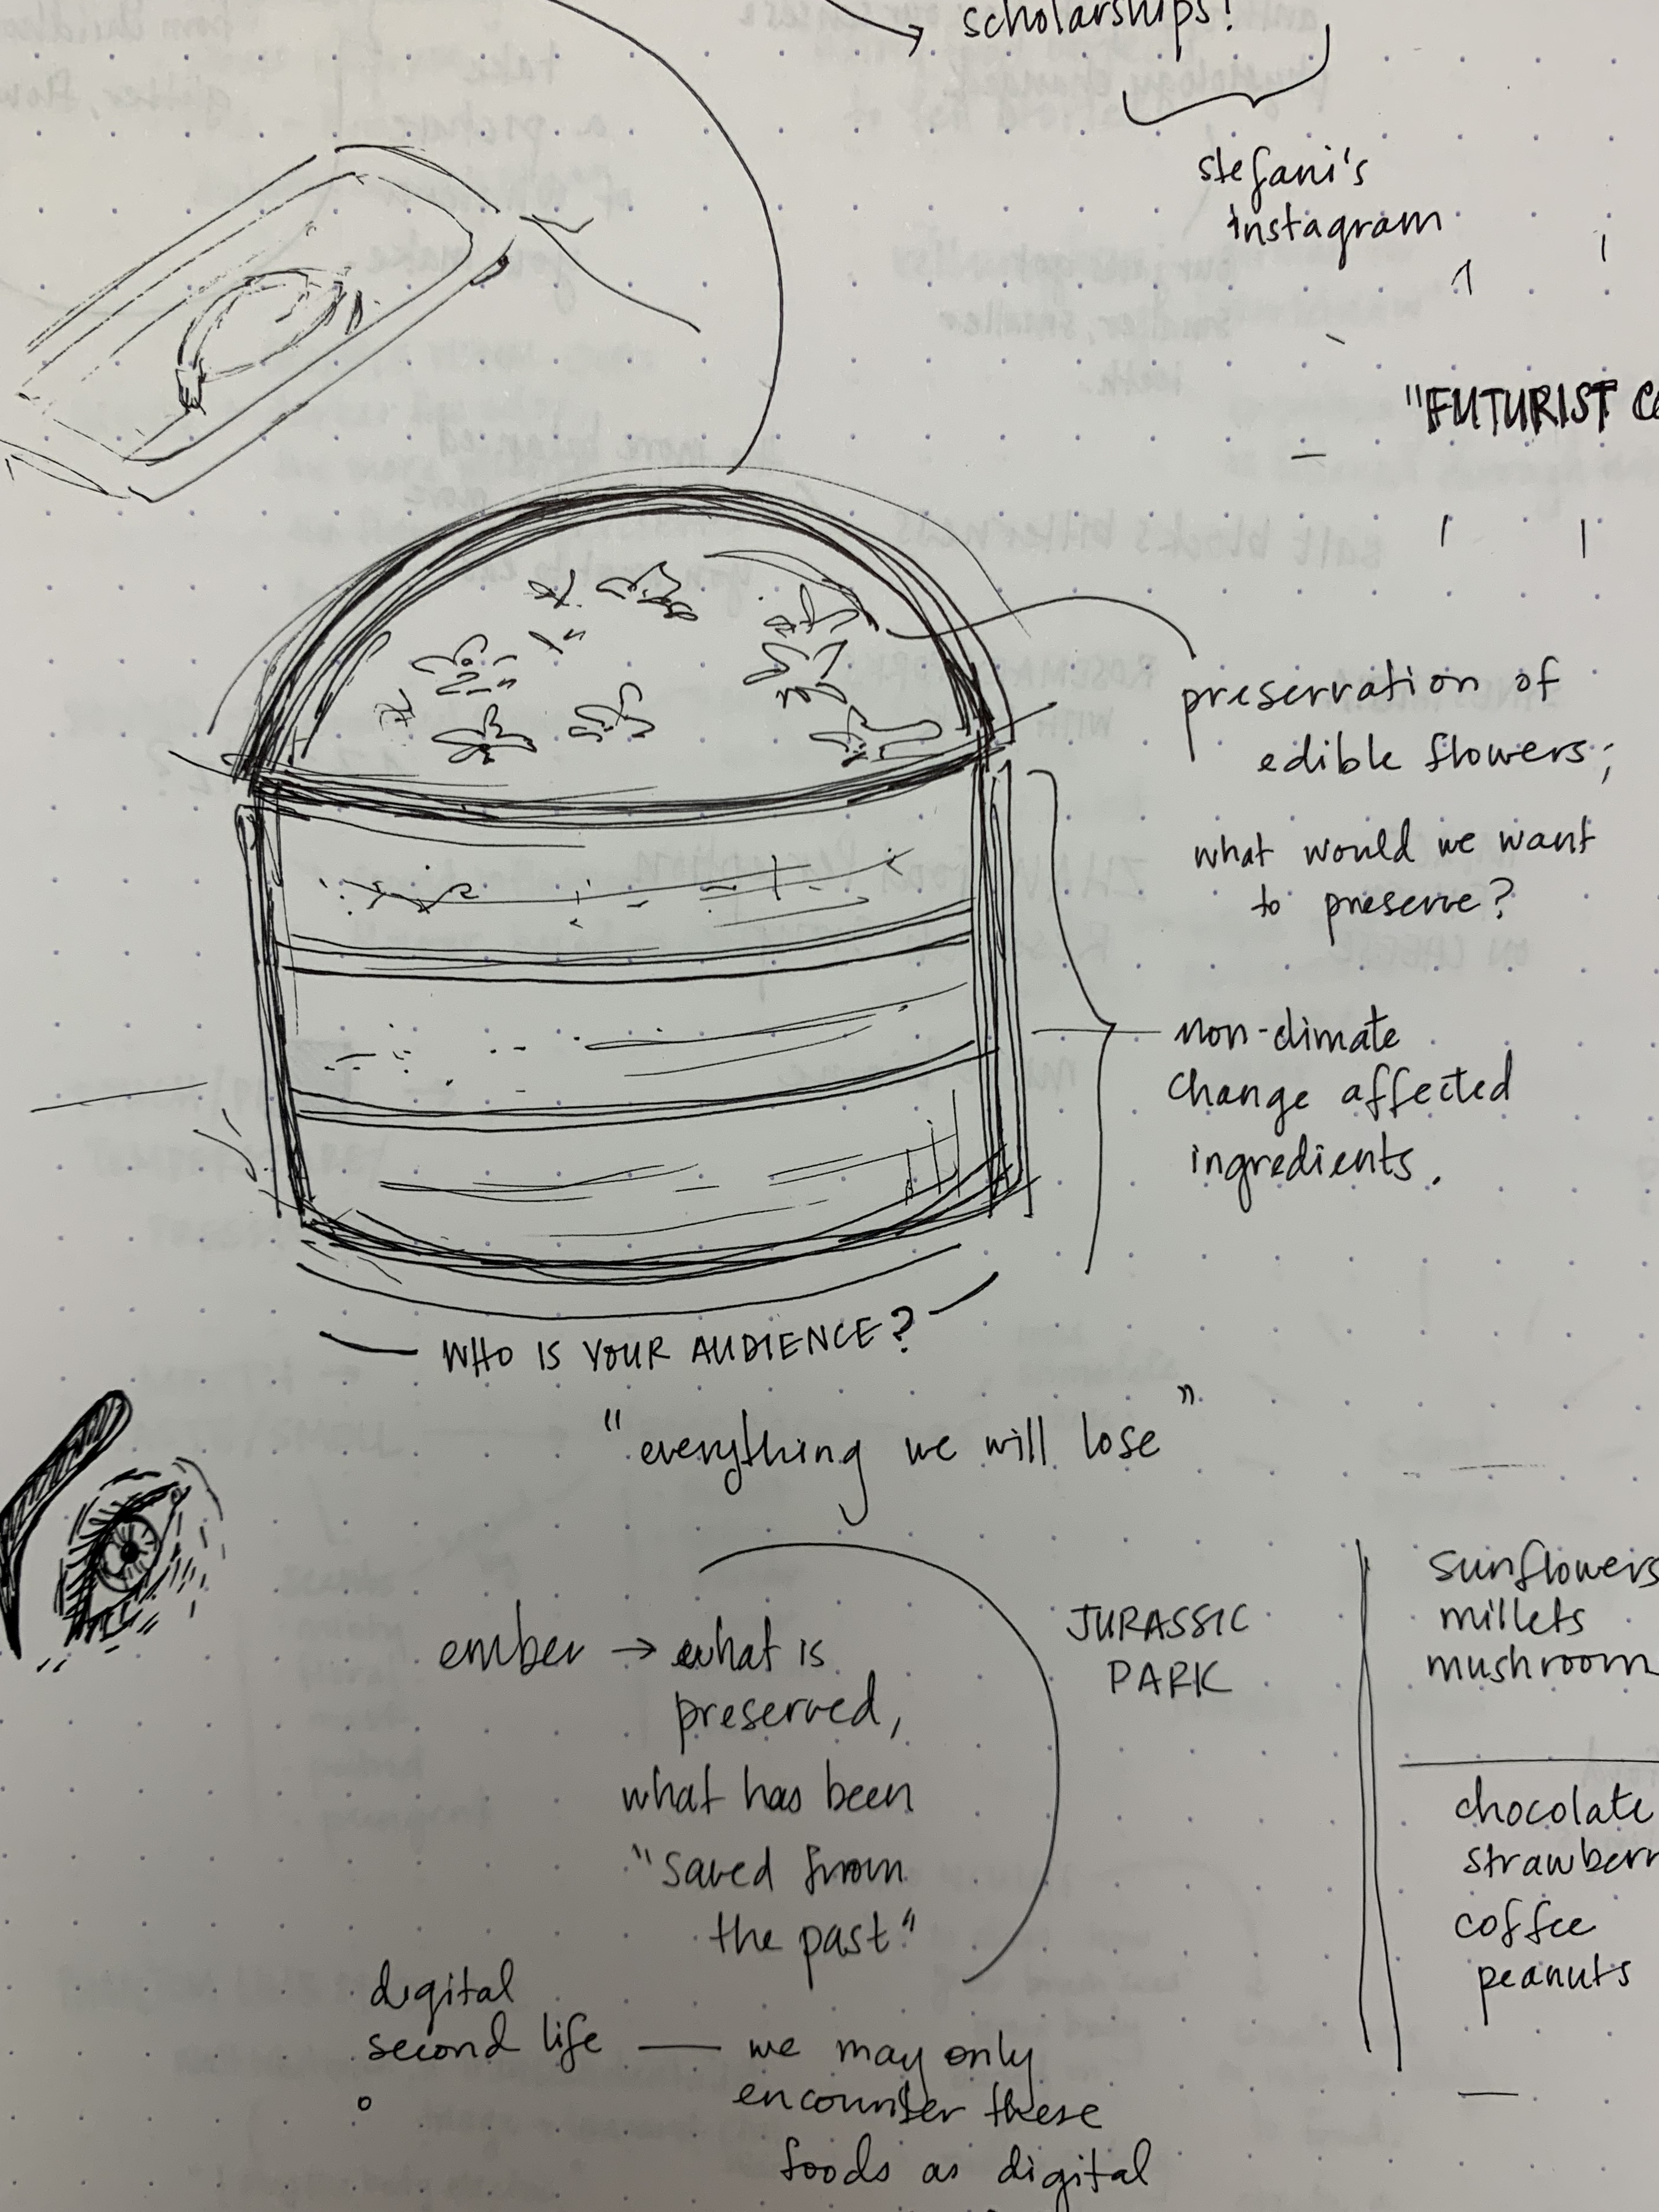 scholarships!
stefani's
instagram
"FUTURIST
preservation of
edible flowers;
what would we want
to preserve?
non-climate
change affected
ingredients.
WHO IS YOUR AUDIENCE?
"everything we will lose"
ember → what is
preserved,
what has been
"saved from
the past"
JURASSIC
PARK
sunflowers
millets
mushroom
chocolate
strawberr
coffee
peanuts
digital
second life — we may only
encounter these
foods as digital